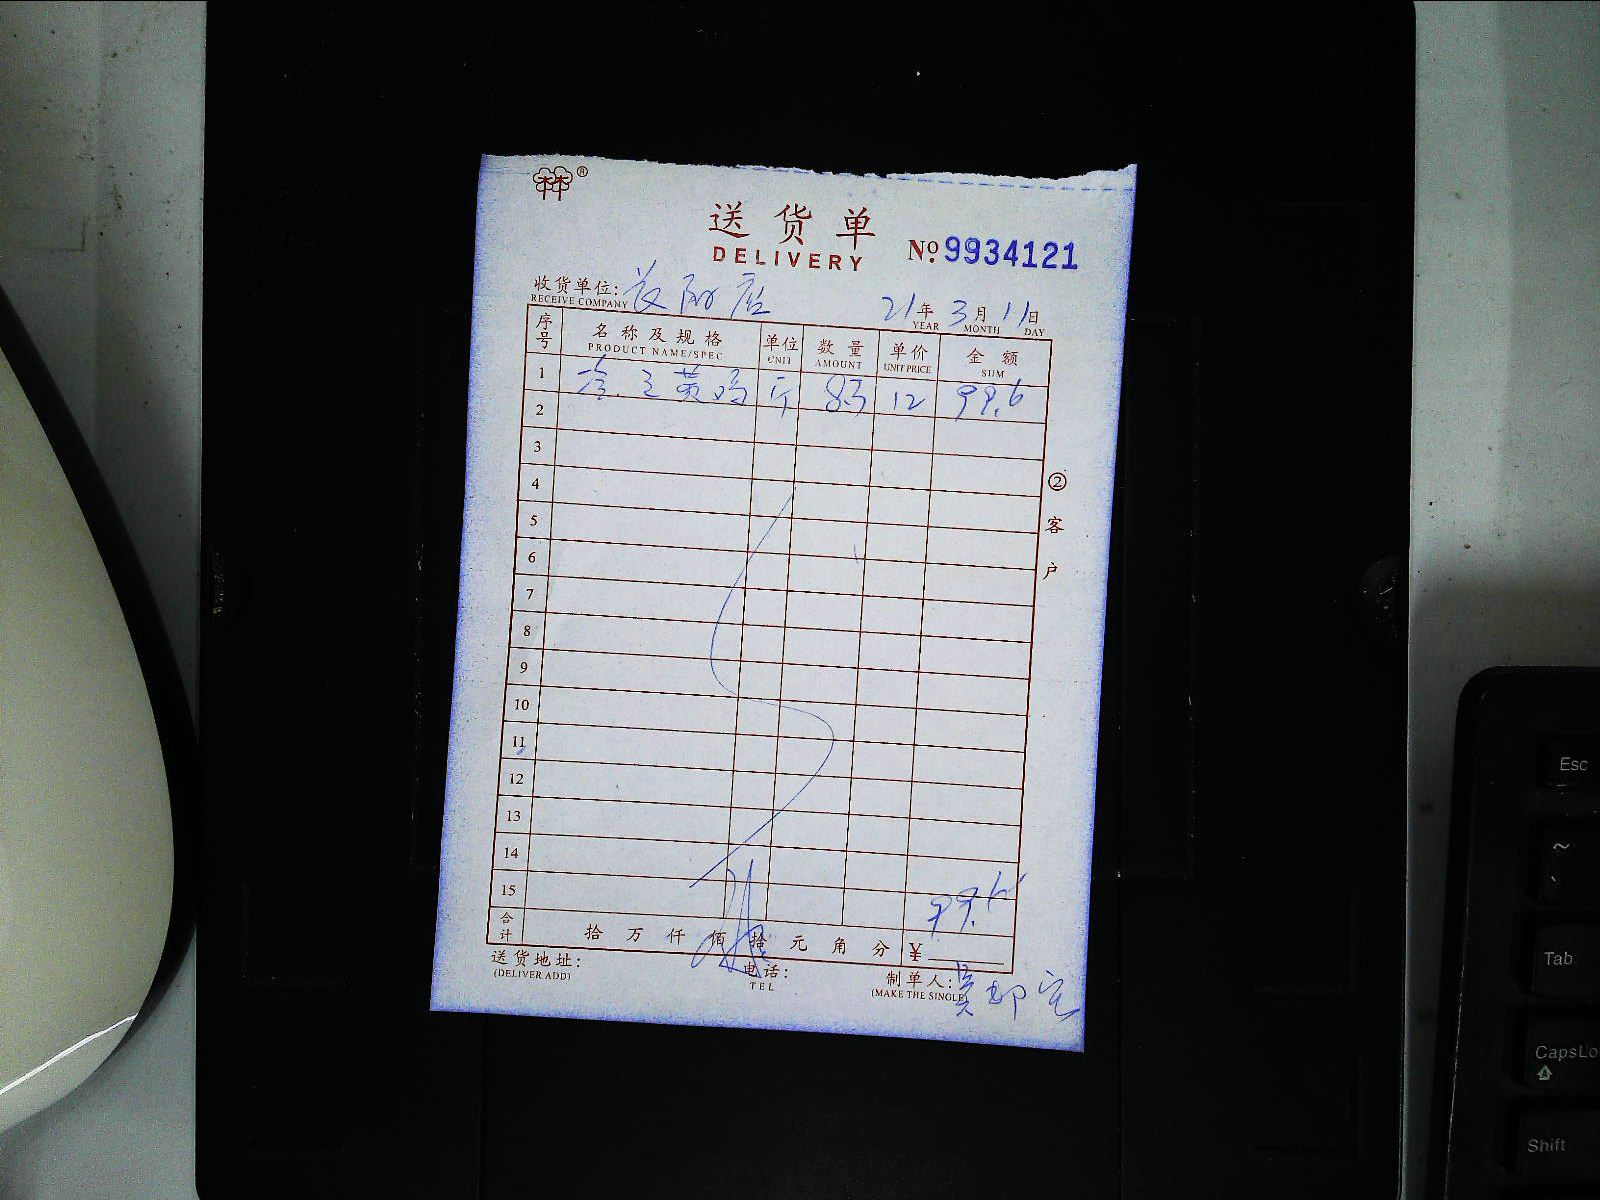 林®
送货单
DELIVERY
No. 9934121
收货单位:
RECEIVE COMPANY
21年 3月 11日
YEAR MONTH DAY
序号 名称及规格 单位 数量 单价 金额
PRODUCT NAME/SPEC UNIT AMOUNT UNIT PRICE SUM
1 黄 斤 8.3 12 99.6
2
3
4
5
6
7
8
9
10
11
12
13
14
15
99.6
合计 拾 万 仟 佰 拾 元 角 分 ¥
送货地址: 电话: 制单人:
(DELIVER ADD) TEL (MAKE THE SINGLE)
② 客户
Esc
~
`
Tab
CapsLo
Shift